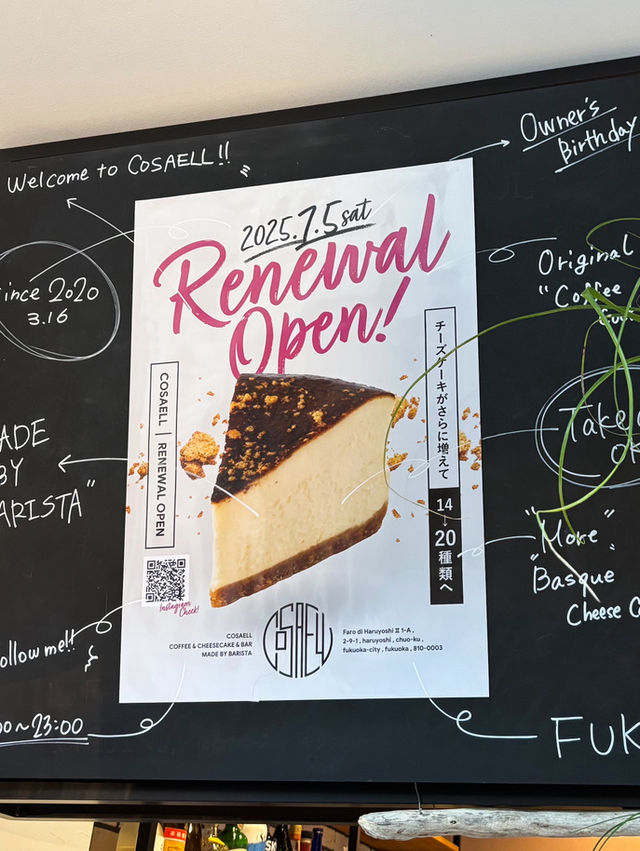 Welcome to COSAELL!!
Owner's
Birthday
2025.7.5 sat
Renewal
Open!
Since 2020
3.16
Original
"Coffee
チーズケーキがさらに増えて
14→20種類へ
COSAELL | RENEWAL OPEN
BY
Take
OK
"More"
Basque
Cheese
Instagram
Check!
COSAELL
COFFEE & CHEESECAKE & BAR
MADE BY BARISTA
COSAELL
Faro di Haruyoshi Ⅱ 1-A ,
2-9-1 , haruyoshi , chuo-ku ,
fukuoka-city , fukuoka , 810-0003
ollow me!!
00～23:00
FUK